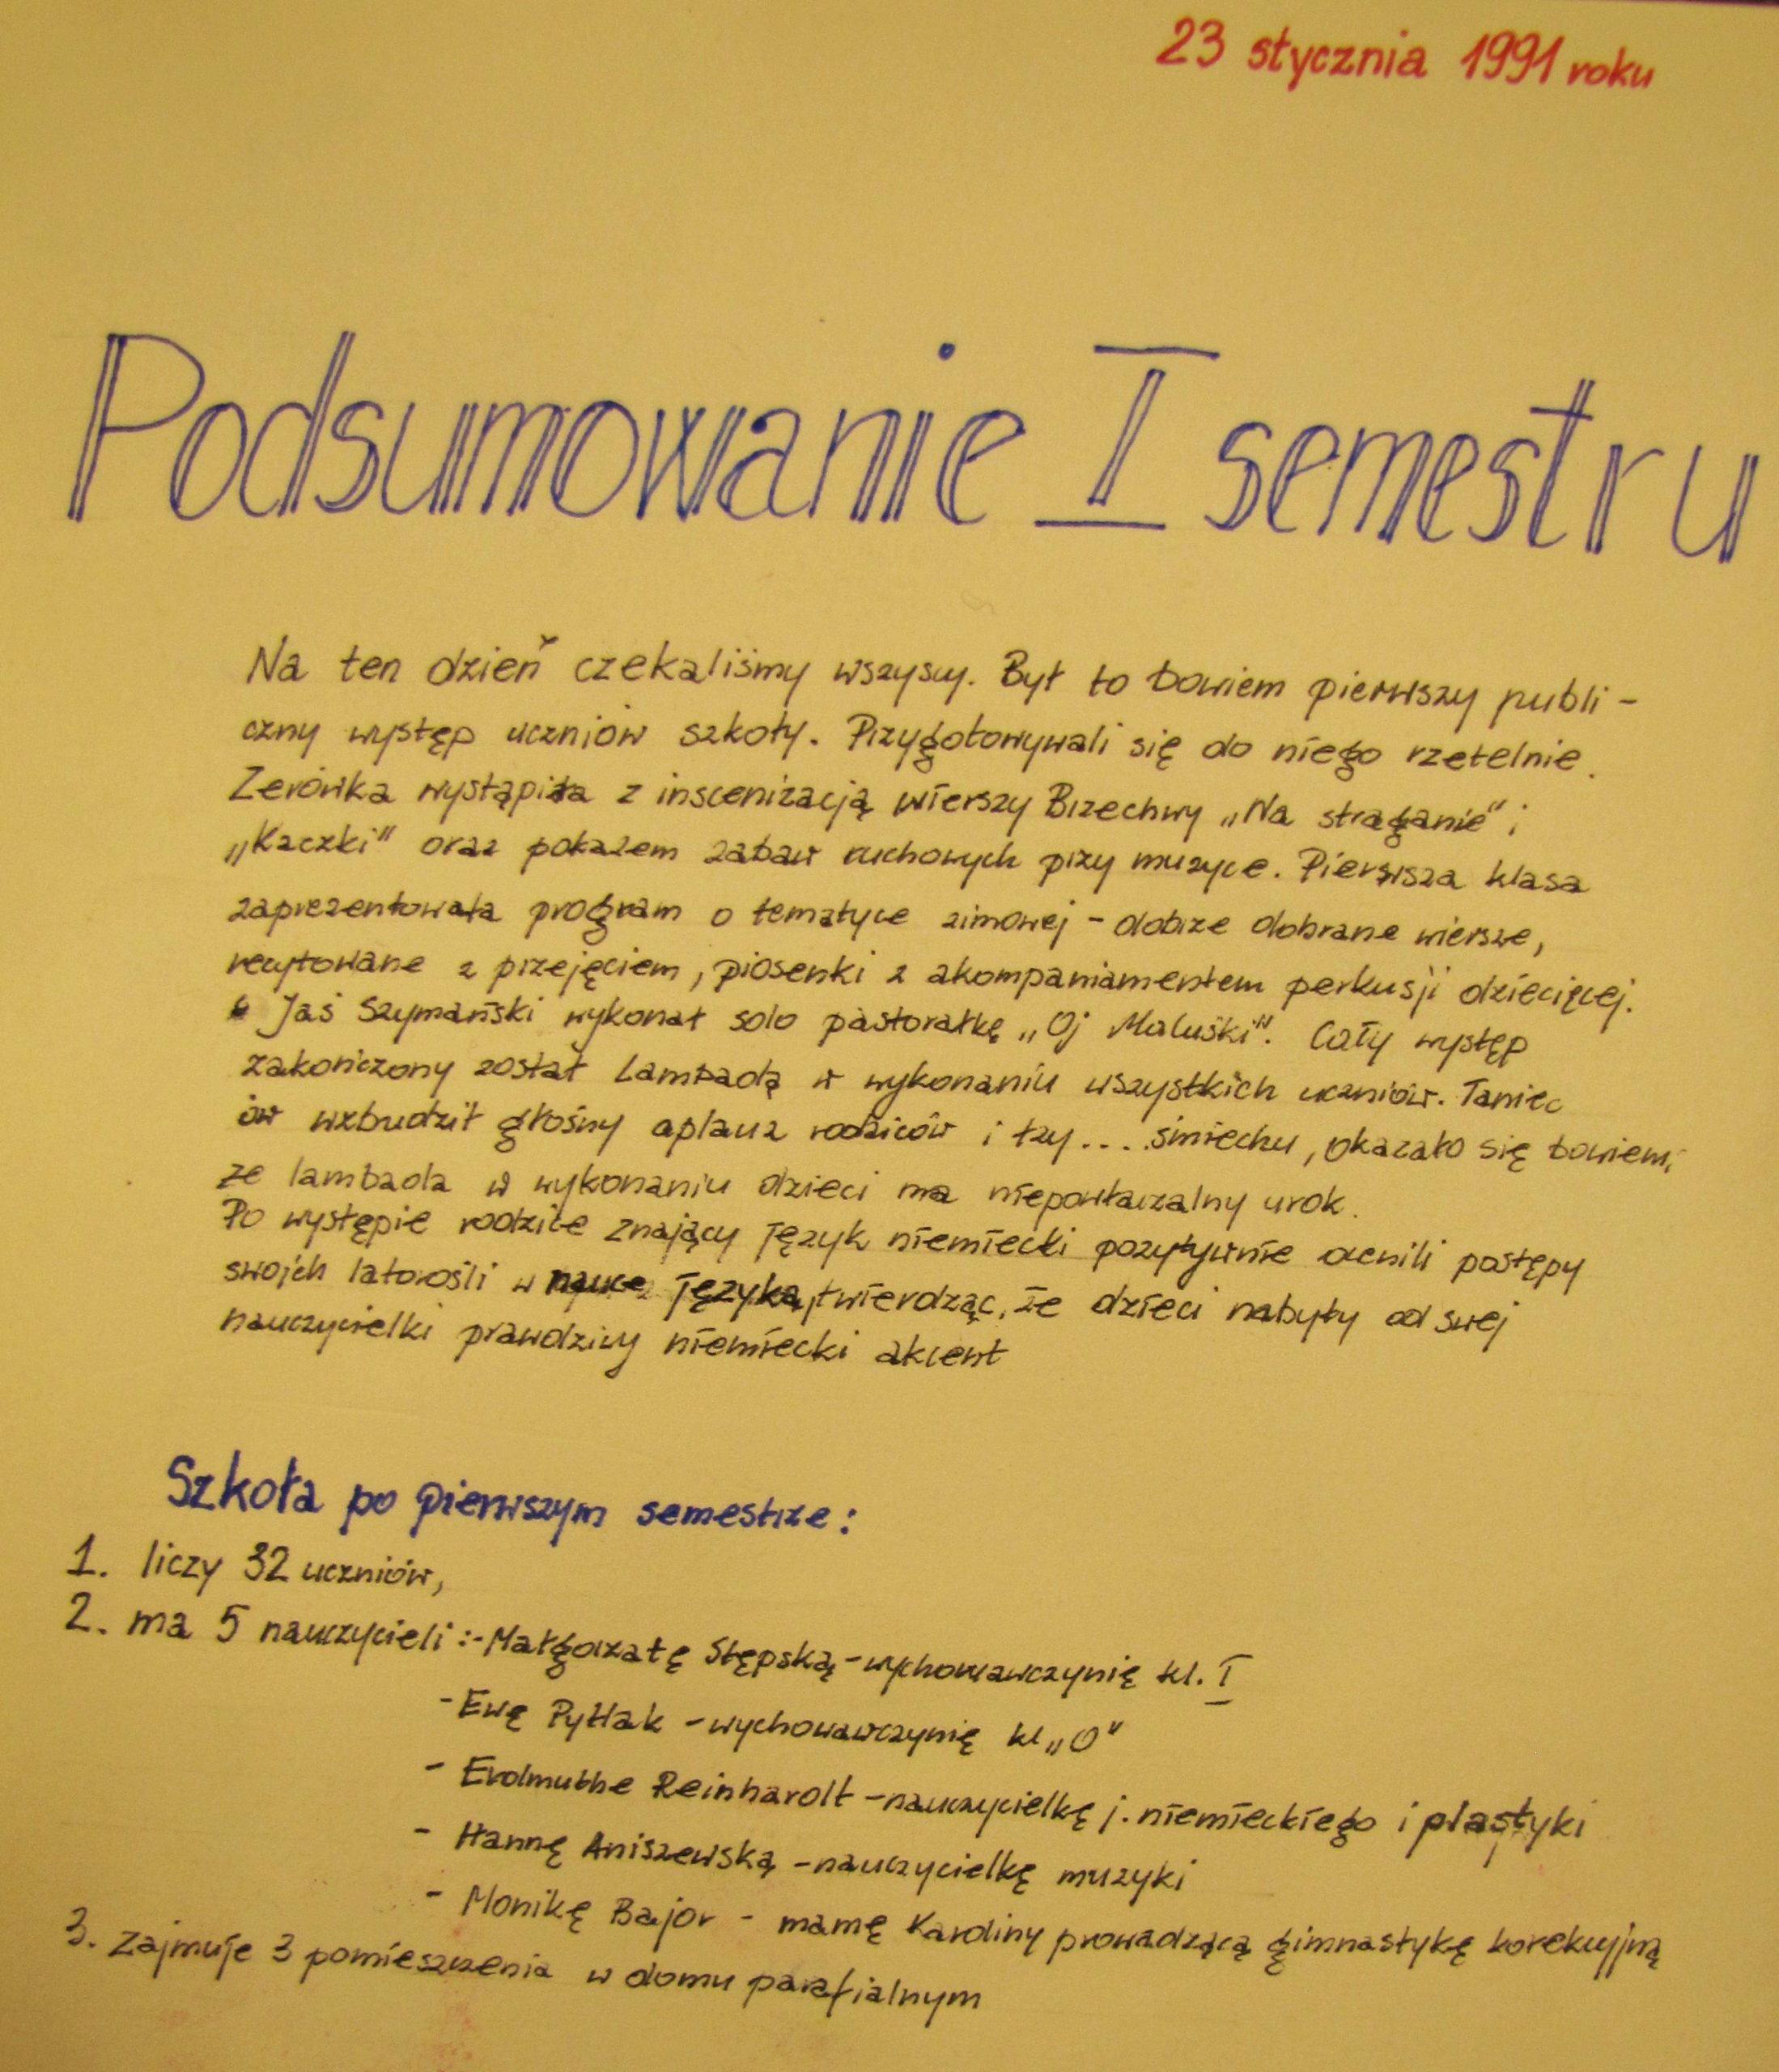 23 stycznia 1991 roku
Podsumowanie I semestru
Na ten dzień czekaliśmy wszyscy. Był to bowiem pierwszy publi-
czny występ uczniów szkoły. Przygotowywali się do niego rzetelnie.
Zerówka wystąpiła z inscenizacją wierszy Brzechwy „Na straganie" i
„Kaczki" oraz pokazem zabaw ruchowych przy muzyce. Pierwsza klasa
zaprezentowała program o tematyce zimowej - dobrze dobrane wiersze,
recytowane z przejęciem, piosenki z akompaniamentem perkusji dziecięcej.
Jaś Szymański wykonał solo pastorałkę „Oj Maluśki". Cały występ
zakończony został Lambadą w wykonaniu wszystkich uczniów. Taniec
ów wzbudził głośny aplauz rodziców i łzy.... śmiechu, okazało się bowiem,
że lambada w wykonaniu dzieci ma niepowtarzalny urok.
Po występie rodzice znający język niemiecki pozytywnie ocenili postępy
swoich latorośli w nauce języka, twierdząc, że dzieci nabyły od swej
nauczycielki prawdziwy niemiecki akcent
Szkoła po pierwszym semestrze:
1. liczy 32 uczniów,
2. ma 5 nauczycieli:- Małgorzatę Stępską - wychowawczynię kl. I
- Ewę Pytlak - wychowawczynię kl „O"
- Erdmuthe Reinhardt - nauczycielkę j. niemieckiego i plastyki
- Hannę Aniszewską - nauczycielkę muzyki
- Monikę Bajor - mamę Karoliny prowadzącą gimnastykę korekcyjną
3. Zajmuje 3 pomieszczenia w domu parafialnym